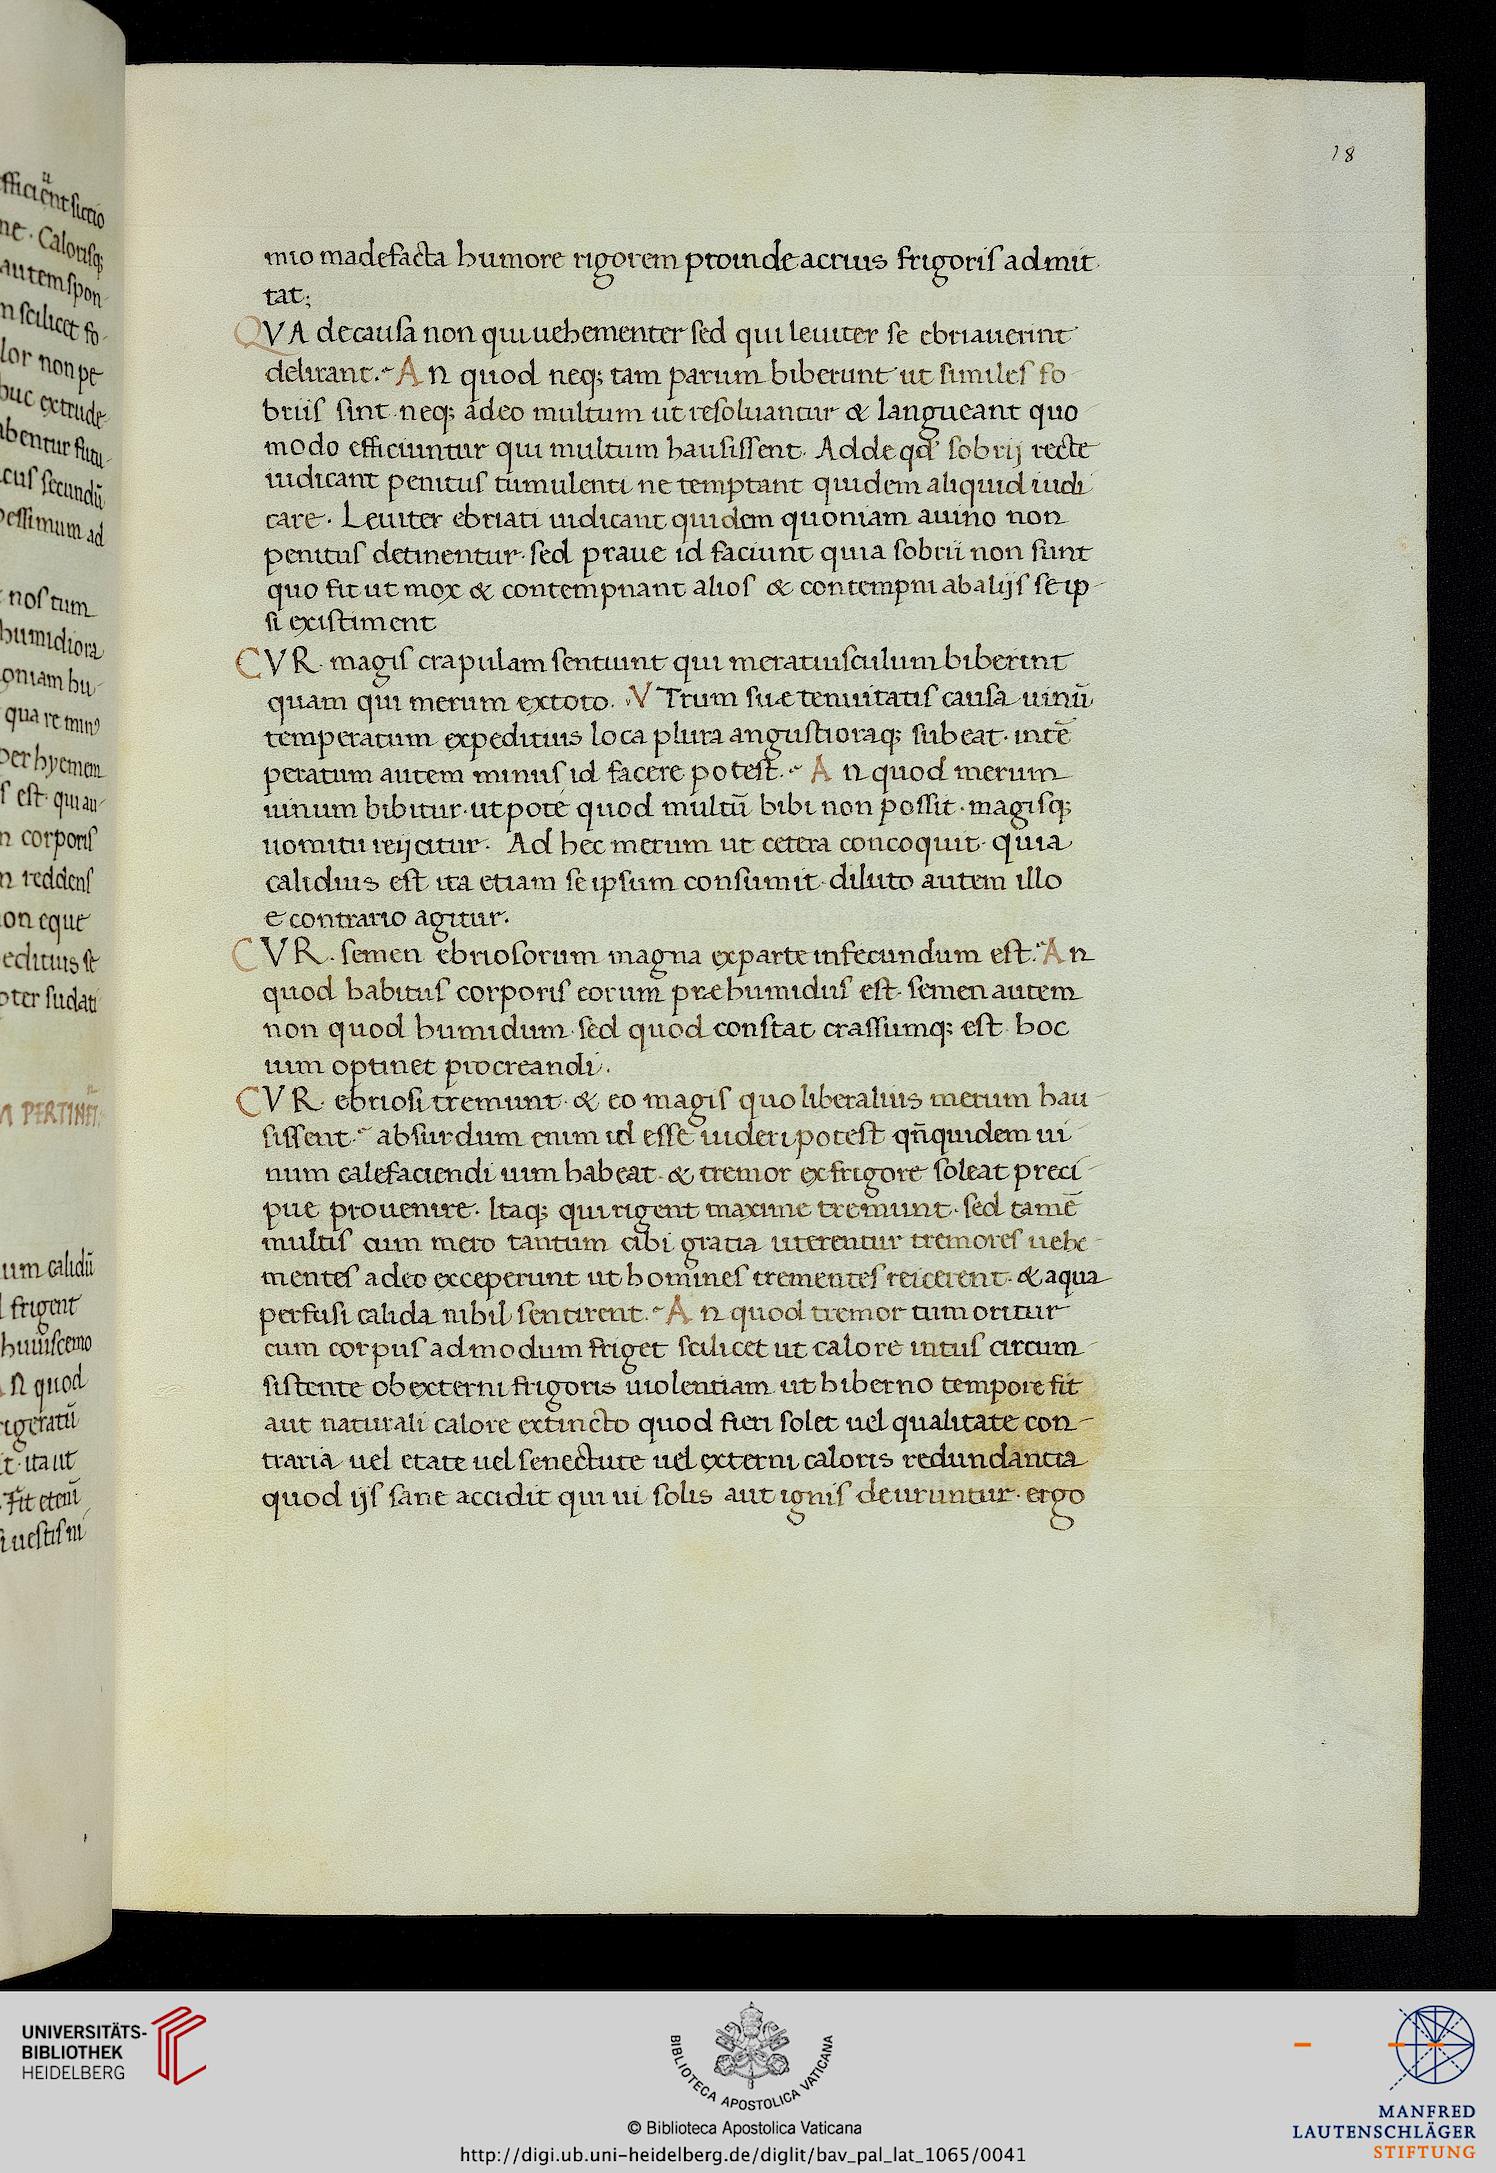 18
mio madefacta humore rigorem proinde acrius frigoris admit
tat;
QVA de causa non qui uehementer sed qui leuiter se ebriauerint
delirant. An quod neq; tam parum biberunt ut similes so
briis sint neq; adeo multum ut resoluantur & langueant quo
modo efficiuntur qui multum hausissent. Adde qd' sobrij recte
iudicant penitus tumulenti ne temptant quidem aliquid iudi
care. Leuiter ebriati iudicant quidem quoniam a uino non
penitus detinentur. sed praue id faciunt quia sobrii non sunt
quo fit ut mox & contempnant alios & contempni ab alijs se ip-
si existiment
CVR. magis crapulam sentiunt qui meratiusculum biberint
quam qui merum ex toto. VTrum suæ tenuitatis causa uinū
temperatum expeditius loca plura angustioraq; subeat. intē
peratum autem minus id facere potest. An quod merum
uinum bibitur. utpote quod multū bibi non possit. magisq;
uomitu reijcitur. Ad hec merum ut cetera concoquit. quia
calidius est ita etiam se ipsum consumit. diluto autem illo
e contrario agitur.
CVR. semen ebriosorum magna ex parte infecundum est. An
quod habitus corporis eorum præhumidus est. semen autem
non quod humidum. sed quod constat crassumq; est hoc
uim optinet procreandi.
CVR ebriosi tremunt. & eo magis quo liberalius merum hau-
sissent. absurdum enim id esse uideri potest qn̄quidem ui
num calefaciendi uim habeat. & tremor ex frigore soleat preci-
pue prouenire. Itaq; qui rigent maxime tremunt. sed tamē
multis cum mero tantum cibi gratia uterentur tremores uehe-
mentes adeo exceperunt ut homines trementes reicerent. & aqua
perfusi calida nihil sentirent. An quod tremor tum oritur
cum corpus admodum friget scilicet ut calore intus circum-
sistente ob externi frigoris uiolentiam. ut hiberno tempore fit
aut naturali calore extincto quod fieri solet uel qualitate con-
traria uel etate uel senectute uel externi caloris redundantia
quod ijs sane accidit qui ui solis aut ignis deuruntur. ergo
UNIVERSITÄTS-
BIBLIOTHEK
HEIDELBERG
BIBLIOTECA APOSTOLICA VATICANA
© Biblioteca Apostolica Vaticana
http://digi.ub.uni-heidelberg.de/diglit/bav_pal_lat_1065/0041
MANFRED
LAUTENSCHLÄGER
STIFTUNG